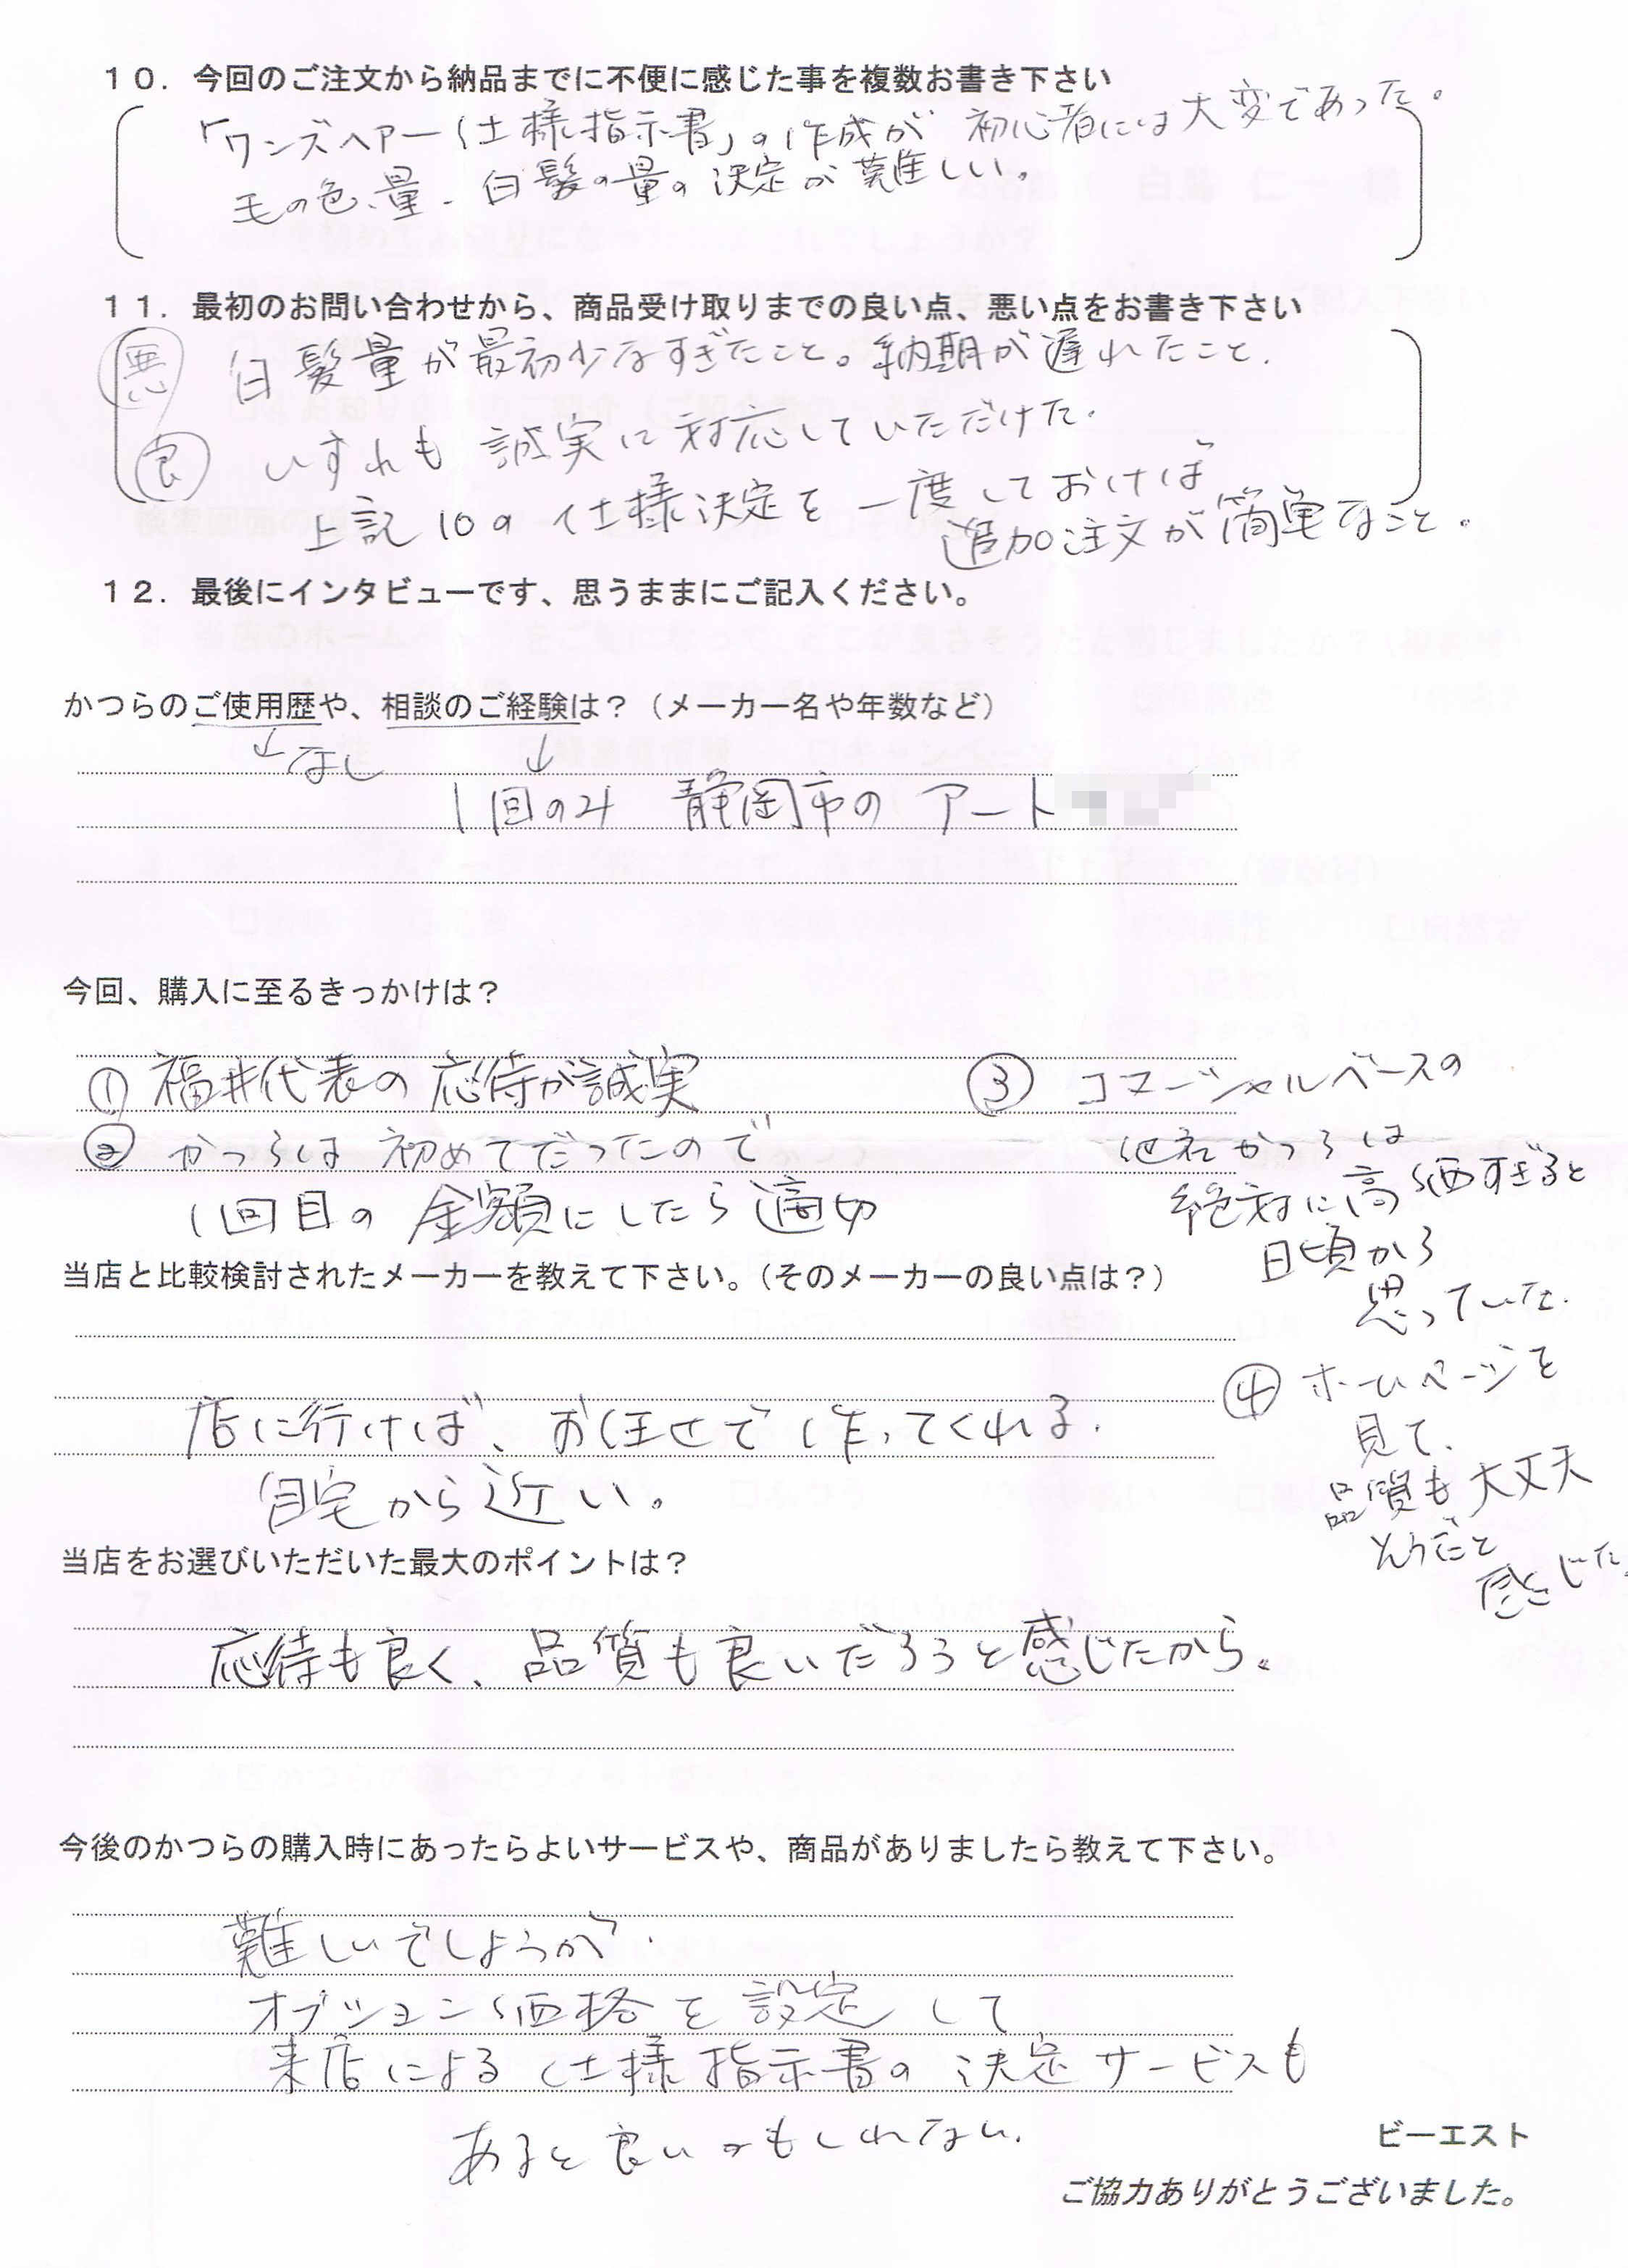 １０．今回のご注文から納品までに不便に感じた事を複数お書き下さい
「ワンズヘアー仕様指示書」の作成が 初心者には大変であった。
毛の色、量、白髪の量の決定が難しい。
１１．最初のお問い合わせから、商品受け取りまでの良い点、悪い点をお書き下さい
悪 白髪量が最初少なすぎたこと。納期が遅れたこと.
良 いずれも 誠実に対応していただけた.
上記10の仕様決定を一度しておけば
追加注文が簡単なこと。
１２．最後にインタビューです、思うままにご記入ください。
かつらのご使用歴や、相談のご経験は？（メーカー名や年数など）
↓なし ↓
1回のみ 静岡市の アート
今回、購入に至るきっかけは？
① 福井代表の 応待が誠実
② かつらは 初めてだったので
1回目の 金額にしたら適切
③ コマーシャルベースの
他社かつらは
絶対に高価すぎると
日頃から
思っていた.
④ ホームページを
見て、
品質も大丈夫
そうだと
感じた
当店と比較検討されたメーカーを教えて下さい。（そのメーカーの良い点は？）
店に行けば、お任せで作ってくれる.
自宅から近い。
当店をお選びいただいた最大のポイントは？
応待も良く、品質も良いだろうと感じたから。
今後のかつらの購入時にあったらよいサービスや、商品がありましたら教えて下さい。
難しいでしょうが、
オプション価格を設定して
来店による仕様指示書の決定サービスも
あると良いかもしれない.
ビーエスト
ご協力ありがとうございました。